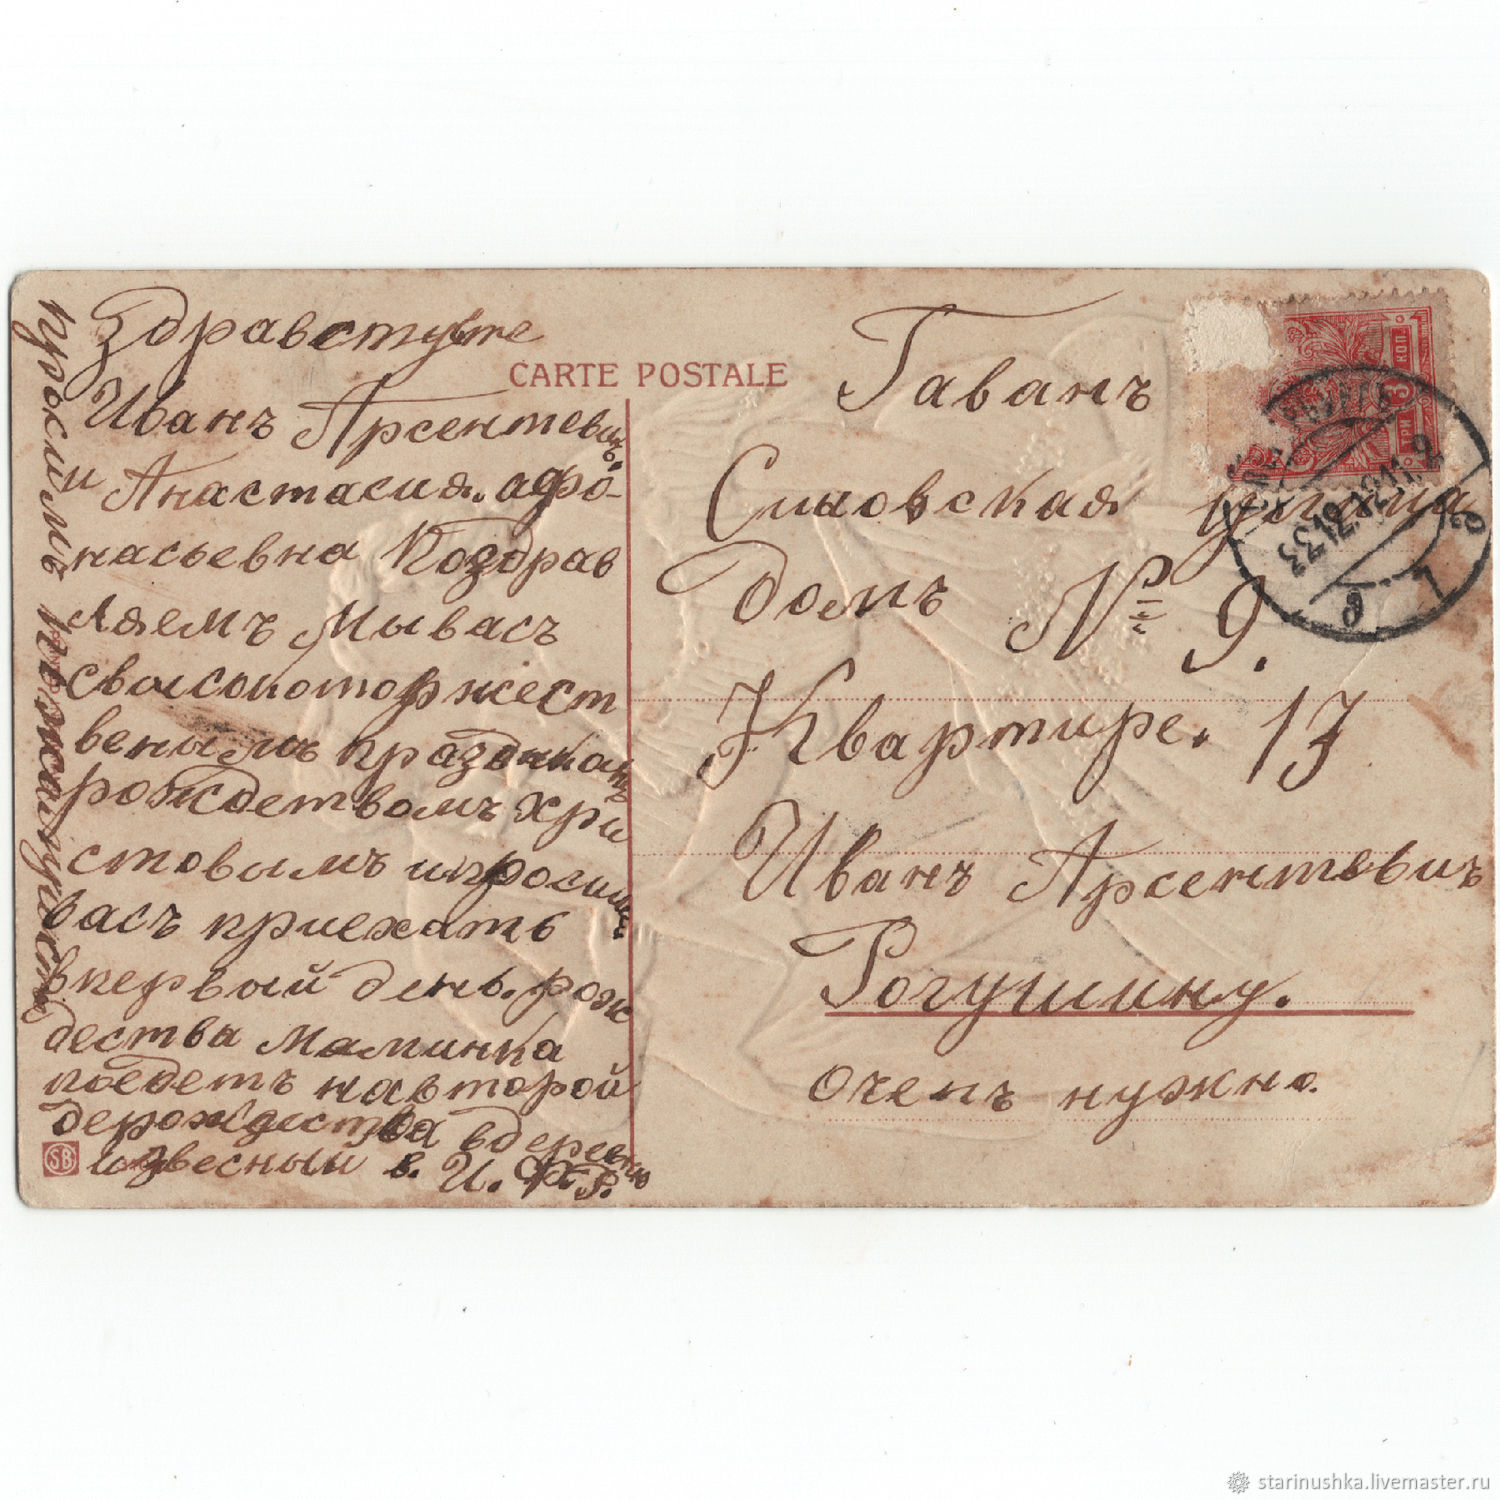 Здравствуйте
CARTE POSTALE
Иванъ Арсентевичъ.
и Анастасия. афо-
насьевна Поздрав
ляемъ Мывасъ
свысокоторжест
веннымъ праздникомъ
рождествомъ Хри
стовымъ ипросимъ
васъ приехать
впервый день. рож
дества Маминка
поедетъ навторой
дерождества вдеревню
извесный в. И. Ф. Р.
просимъ пожалуйсто
Гаванъ
Симовская улица
домъ № 9.
Квартире. 17
Иванъ Арсентевичъ
Рогушину.
очень нужно.
3 КОП.
ТРИ
23.12.12.11.9
SB
starinushka.livemaster.ru